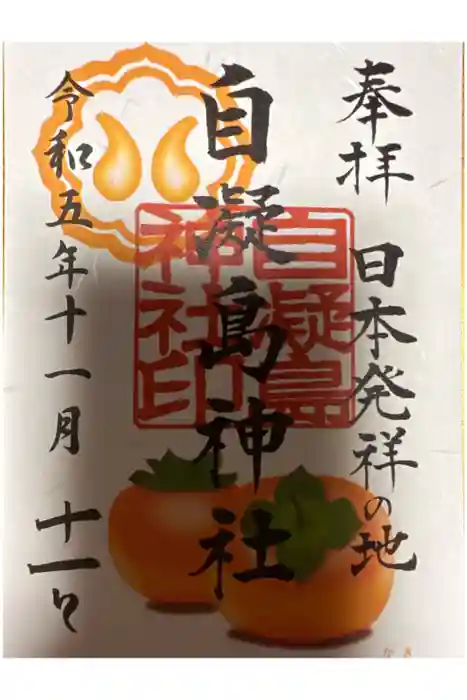 奉拝 日本発祥の地
自凝島神社
自凝島
神社印
令和五年十一月十一日
かき